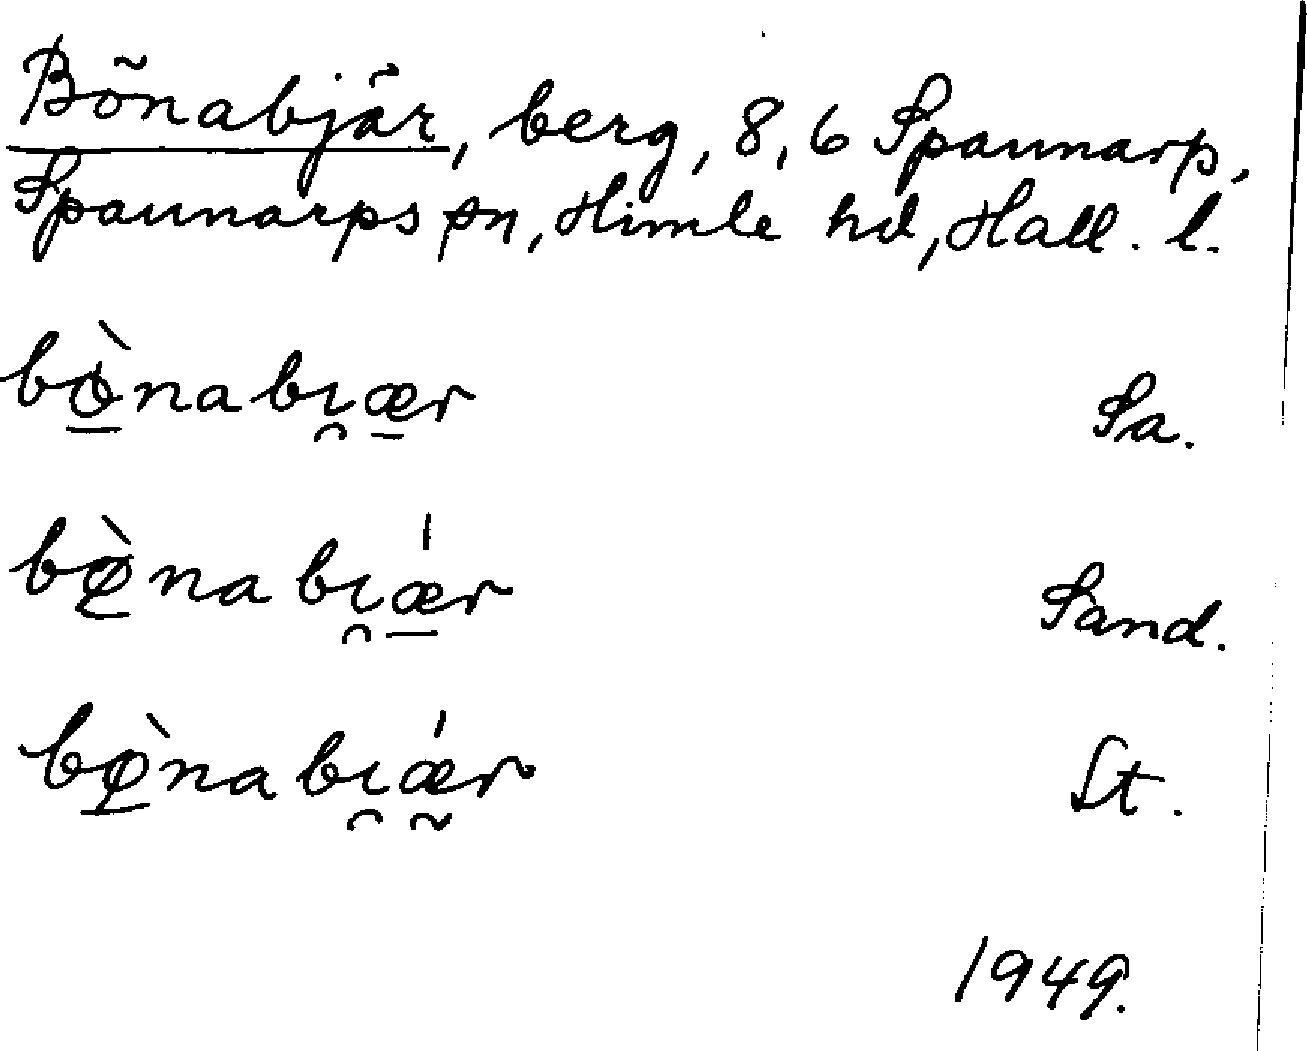 Bõnabjär, berg, 8,6 Spannarp,
Spannarps sn, Himle hd, Hall. l.
bò̱nabı̯æ̱r Sa.
bø̱̀nabı̯ǽ̱r Sand.
bø̱̀nabı̯ǽ̰r St.
1949.